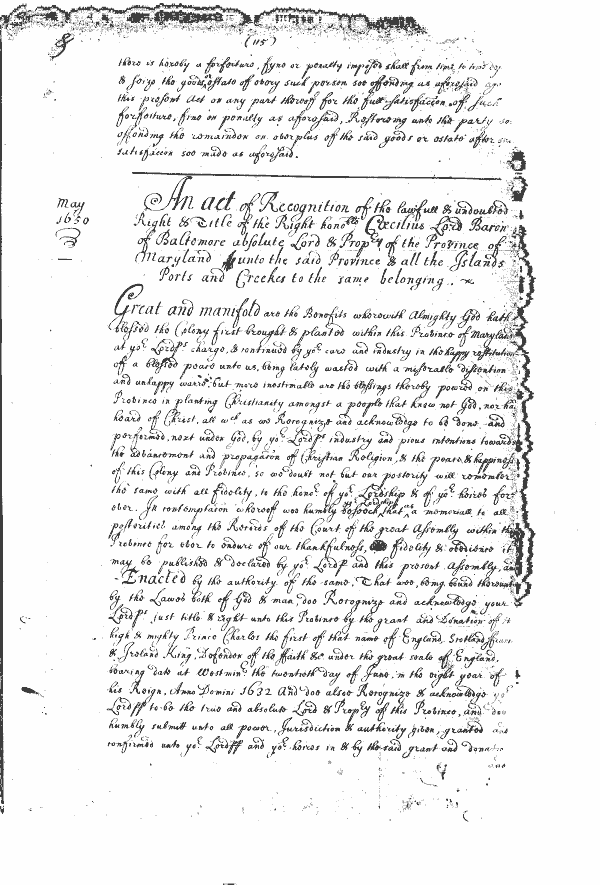 (115)
there is hereby a forfeiture, fyne or penalty imposed shall from time to time
& seize the goods, estate of every such person soe offending as aforesaid
this present Act on any part thereof for the full satisfaccon of such
forfeiture, fine on penalty as aforesaid, Restoreing unto the party so
offending the remaindon on overplus of the said goods or estate after
satisfaccon soe made as aforesaid.
May
1650
An act of Recognition of the lawfull & undoubted
Right & Title of the Right hono:ble Cæcilius Lord Baron
of Baltemore absolute Lord & Prop:ry of the Province of
Maryland unto the said Province & all the Islands
Ports and Creekes to the same belonging.
Great and manifold are the Benefits wherewith Almighty God hath
blessed the Colony first brought & planted within this Province of Maryland
at yo:r Lordps charge, & continued by yo:r care and industry in the happy restitution
of a blessed peace unto us, being lately wasted with a miserable dissention
and unhappy warr; but more inestimable are the blessings thereby powred on this
Province in planting Christianity amongst a people that knew not God, nor ha
heard of Christ. all wch as we Recognize and acknowledge to be done and
performed, next under God, by yo:r Lordps industry and pious intentions towards
the advancement and propagacon of Christian Religion, & the peace & happiness
of this Colony and Province, so we doubt not but our posterity will remember
the same with all fidelity, to the hono:r of yo:r Lordship & of yo:r heires for
ever. In contemplacon whereof wee humbly beseech yo:r Lordship that, as a memoriall to all
posterities among the Records of the Court of the great Assembly within the
Province for ever to endure of our thankfulness, fidelity & obedience it
may be published & declared by yo:r Lordp and this present Assembly, and
Enacted by the authority of the same. That wee, being bound thereunto
by the Lawes both of God & man, doe Recognize and acknowledge your
Lordps just title & right unto this Province by the grant and Donation of
high & mighty Prince Charles the first of that name of England, Scotland ffrance
& Ireland King, Defendor of the ffaith &c under the great seale of England,
bearing date at Westmin:r the twentieth day of June, in the eight year of
his Reign, Anno Domini 1632 And doe alsoe Recognize & acknowledge yo:r
Lordpp to be the true and absolute Lord & Prop:ry of this Province, and doe
humbly submitt unto all power, Jurisdiction & authority given, granted and
confirmed unto yo:r Lordpp and yo:r heires in & by the said grant and donatio